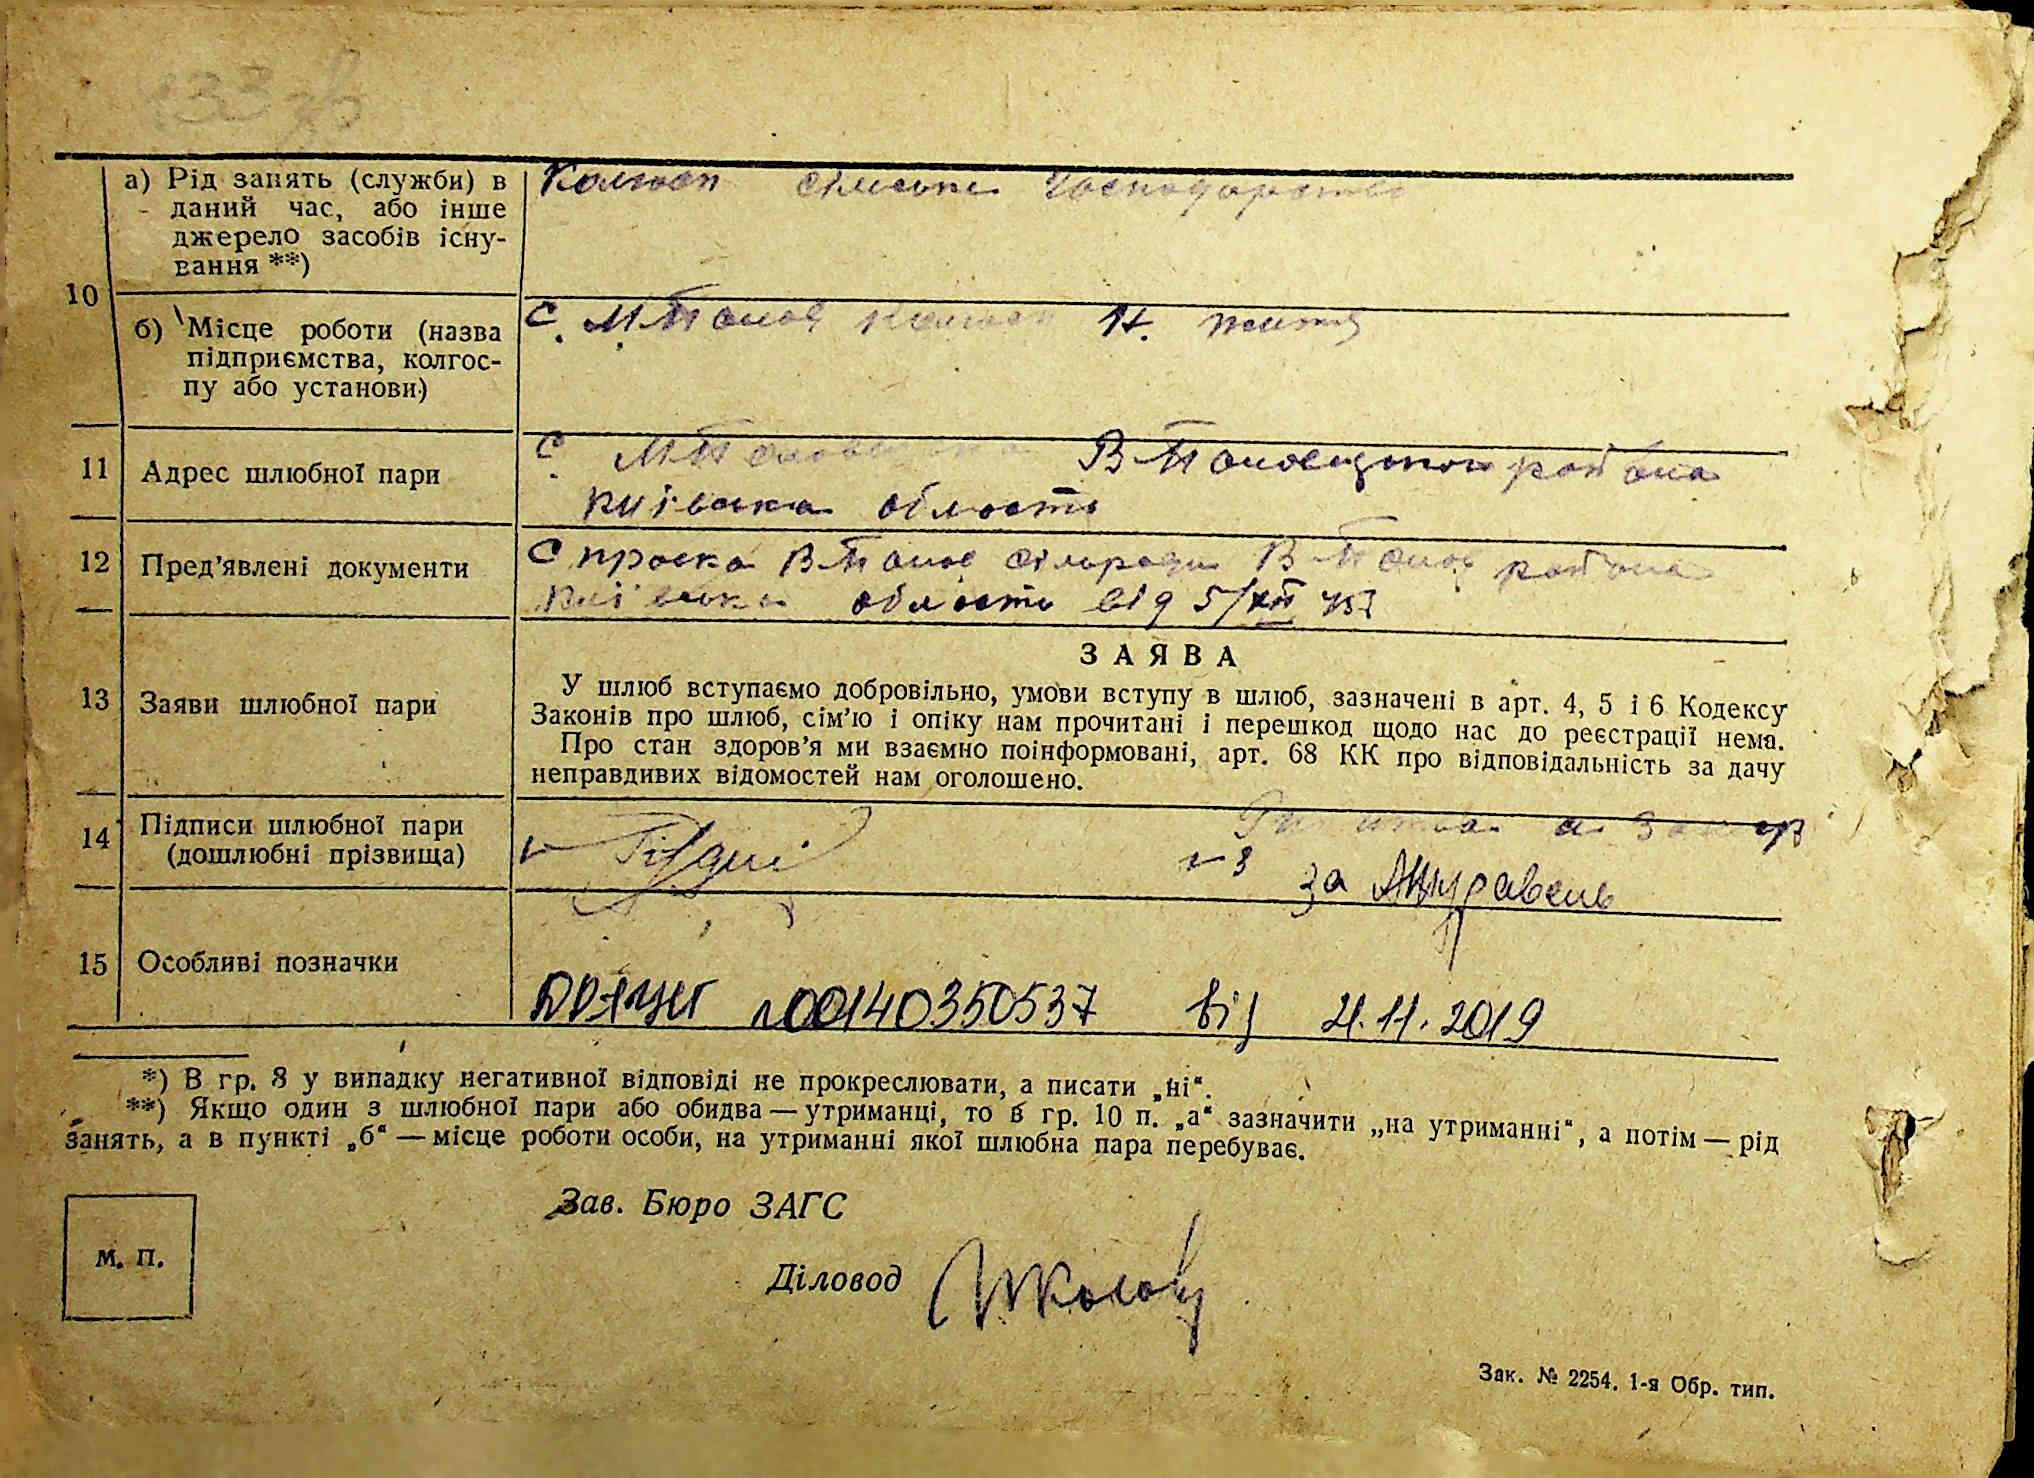 133 зв
10
а) Рід занять (служби) в
даний час, або інше
джерело засобів існу-
вання **)
Колгосп сільське господарство
б) Місце роботи (назва
підприємства, колгос-
пу або установи)
С.
11
Адрес шлюбної пари
С. району
Київська область
12
Пред’явлені документи
Справка сільради района
Київська область від 5/XII
13
Заяви шлюбної пари
ЗАЯВА
У шлюб вступаємо добровільно, умови вступу в шлюб, зазначені в арт. 4, 5 і 6 Кодексу
Законів про шлюб, сім’ю і опіку нам прочитані і перешкод щодо нас до реєстрації нема.
Про стан здоров’я ми взаємно поінформовані, арт. 68 КК про відповідальність за дачу
неправдивих відомостей нам оголошено.
14
Підписи шлюбної пари
(дошлюбні прізвища)
за Журавель
15
Особливі позначки
00140350537 від 21.11.2019
*) В гр. 8 у випадку негативної відповіді не прокреслювати, а писати „ні“.
**) Якщо один з шлюбної пари або обидва — утриманці, то в гр. 10 п. „а“ зазначити „на утриманні“, а потім — рід
занять, а в пункті „б“ — місце роботи особи, на утриманні якої шлюбна пара перебуває.
Зав. Бюро ЗАГС
М. П.
Діловод
Зак. № 2254. 1-я Обр. тип.